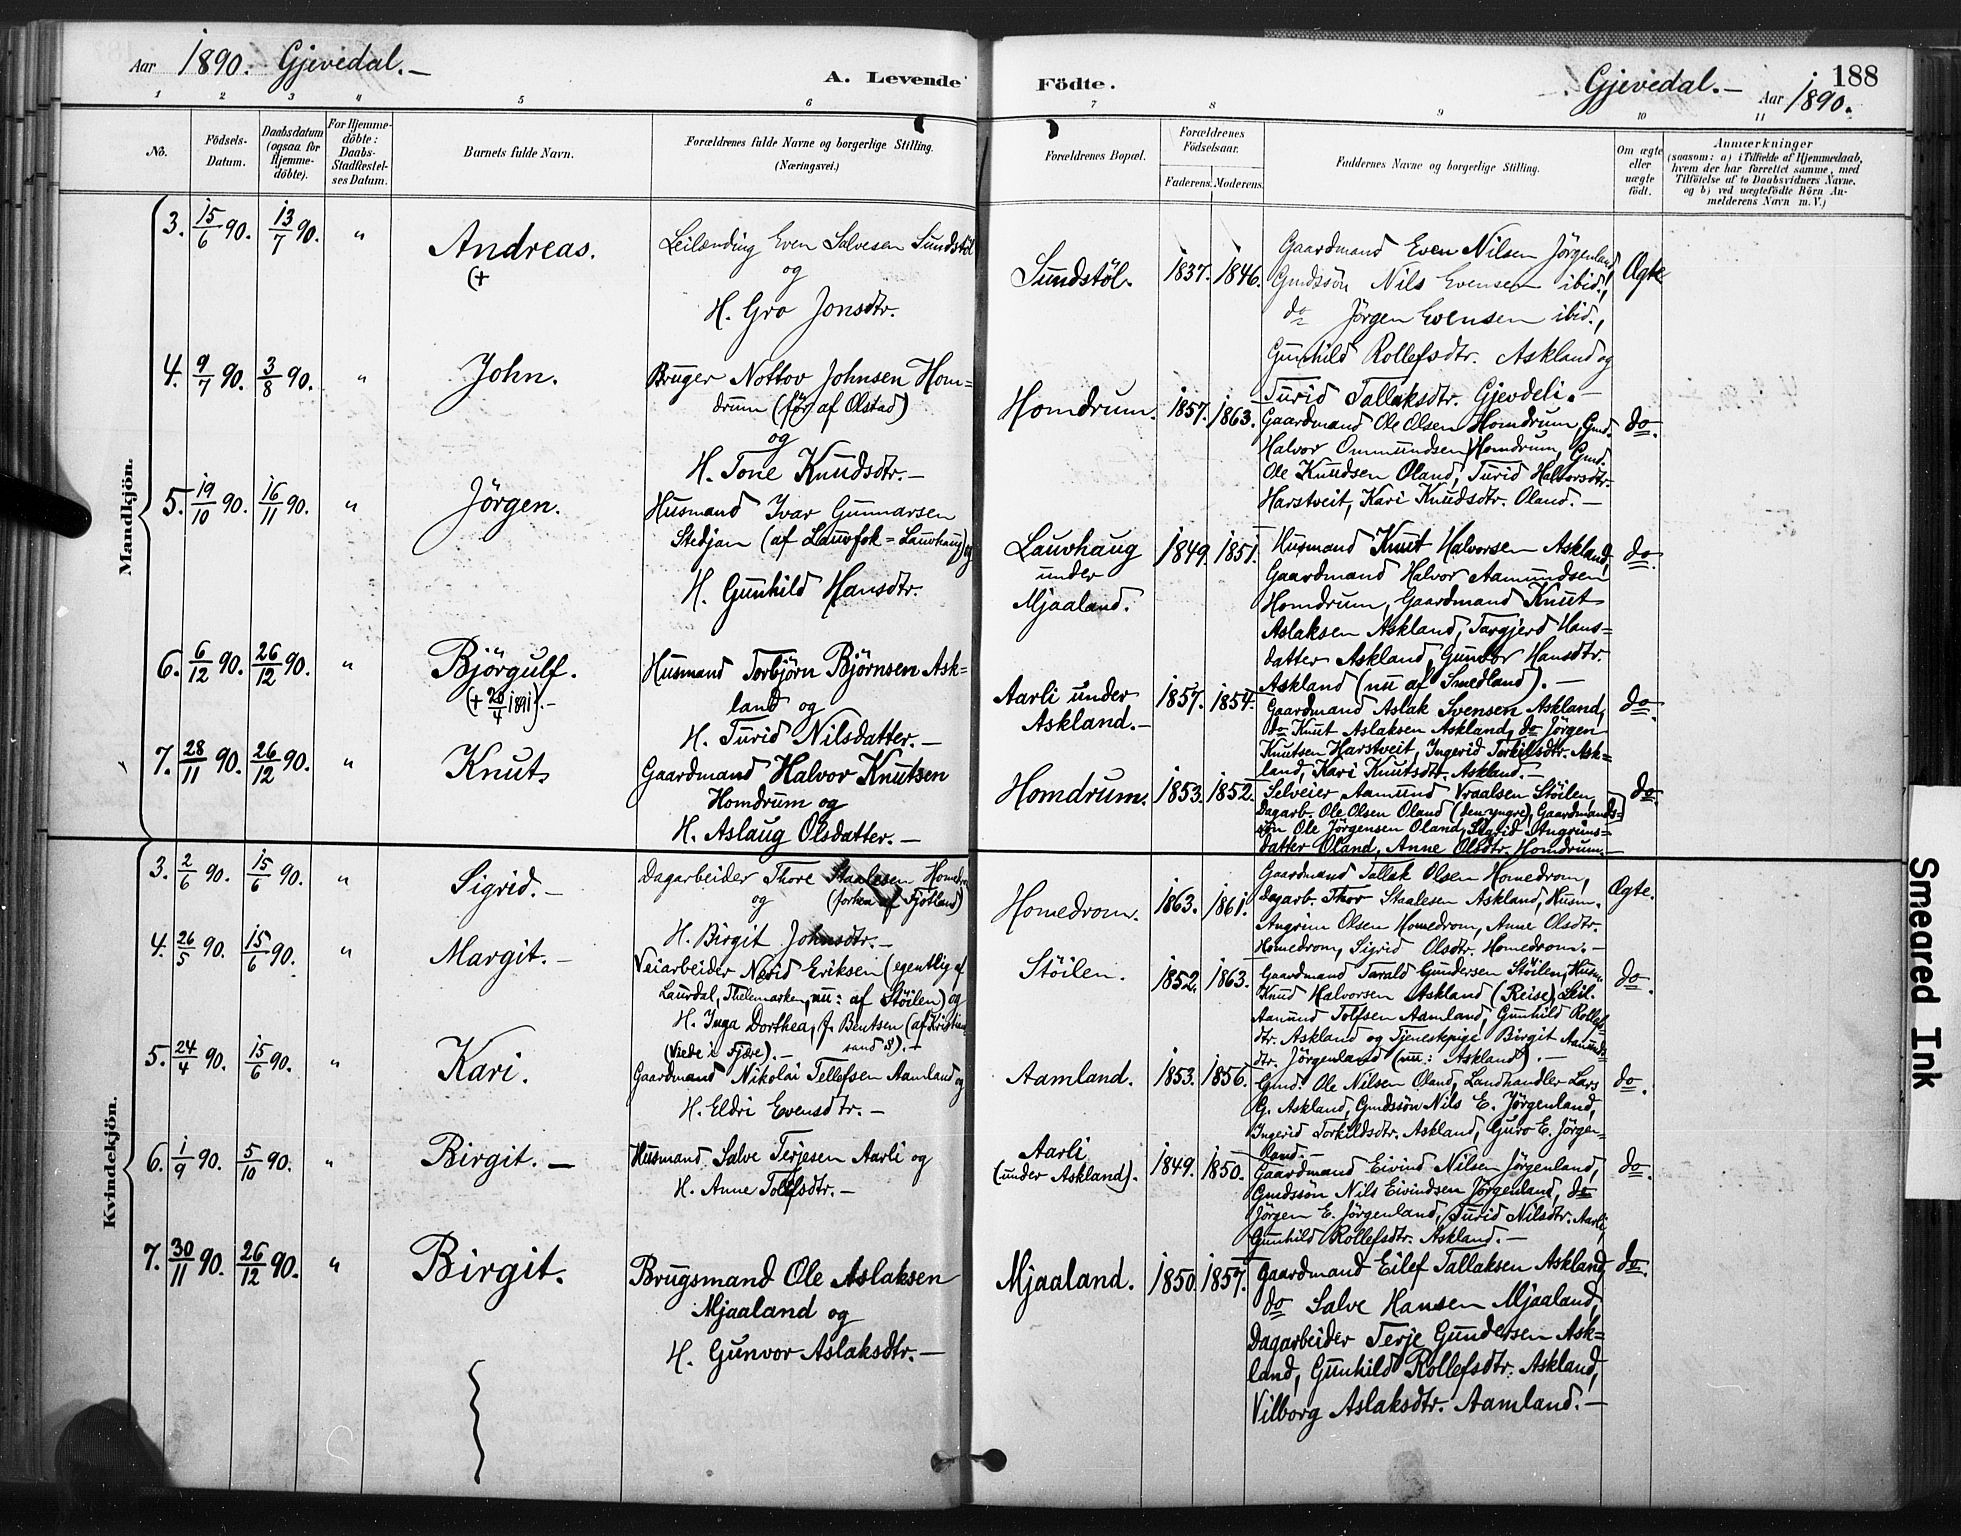 Aar 1890. Gjevedal. –
A. Levende Födte.
Gjevedal. – Aar 1890.
188
1 2 3 4 5 6 7 8 9 10 11
No.
Födsels-Datum.
Daabsdatum (ogsaa for Hjemme-döbte).
For Hjemme-döbte: Daabs-Stadfæstel-ses Datum.
Barnets fulde Navn.
Forældrenes fulde Navne og borgerlige Stilling.
(Næringsvei.)
Forældrenes Bopæl.
Forældrenes Födselsaar.
Faderens. Moderens.
Faddernes Navne og borgerlige Stilling.
Om ægte eller uægte födt.
Anmærkninger
(saasom: a) i Tilfælde af Hjemmedaab,
hvem der har forrettet samme, med
Tilföielse af to Daabsvidners Navne,
og b) ved uægtefödte Börn An-
melderens Navn m. V.)
Mandkjön.
3. 15/6 90. 13/7 90. " Andreas.
(+
Leilænding Even Salvesen Sundstöl
og
H. Gro Jonsdtr.
Sundstöl. 1837. 1846.
Gaardmand Even Nilsen Jörgenland
Gmdssön Nils Evensen ibid.,
do Jörgen Evensen ibid.,
Gunhild Rollefsdtr. Askland og
Turid Tallaksdtr. Gjevdeli. –
Ægte
4. 9/7 90. 3/8 90. " John.
Bruger Nottov Johnsen Hom=
drum (før af Olstad)
og
H. Tone Knudsdtr. –
Homdrum. 1857. 1863.
Gaardmand Ole Olsen Homdrum, Gmd.
Halvor Ommundsen Homdrum, Gmd.
Ole Knudsen Oland, Turid Halvorsdtr.
Harstveit, Kari Knudsdtr. Oland. –
do.
5. 19/10 90. 16/11 90. " Jörgen.
Husmand Ivar Gunnarsen
Stedjan (af Lauvfok = Lauvhaug) og
H. Gunhild Hansdtr.
Lauvhaug
under
Mjaaland.
1849. 1851.
Husmand Knut Halvorsen Askland,
Gaardmand Halvor Aamundsen
Homdrum, Gaardmand Knut
Aslaksen Askland, Targjerd Hans=
datter Askland, Gunvor Hansdtr.
Askland (nu af Smedland). –
do.
6. 6/12 90. 26/12 90. " Björgulf.
(+ 20/4 1891). –
Husmand Torbjörn Björnsen Ask=
land og
H. Turid Nilsdatter. –
Aarli under
Askland. –
1857. 1854.
Gaardmand Aslak Svensen Askland,
do Knut Aslaksen Askland, do Jörgen
Knutsen Harstveit, Ingerid Torkildsdtr. Ask=
land, Kari Knutsdtr. Askland. –
do.
7. 28/11 90. 26/12 90. " Knut
Gaardmand Halvor Knutsen
Homdrum og
H. Aslaug Olsdatter. –
Homdrum. 1853. 1852.
Selveier Aamund Vraalsen Stöilen,
Dagarb. Ole Olsen Oland (den yngre), Gaardmands=
søn Ole Jörgensen Oland, Sigrid Angrims=
datter Oland, Anne Olsdtr. Homdrum. –
do.
Kvindekjön.
3. 2/6 90. 15/6 90. " Sigrid. –
Dagarbeider Thore Staalesen Homedrom
og (forhen af Fjotland)
H. Birgit Johnsdtr. –
Homedrom. 1863. 1861.
Gaardmand Tallak Olsen Homedrom,
Dagarb. Thor Staalesen Askland, Husm.
Angrim Olsen Homedrom, Anne Olsdtr.
Homedrom, Sigrid Olsdtr. Homedrom. –
Ægte.
4. 26/5 90. 15/6 90. " Margit. –
Veiarbeider Nerid Eriksen (egentlig af
Laurdal, Thelemarken, nu: af Stöilen) og
H. Inga Dorthea, J. Bentsen (af Kristian-
(Viede i Fjære). – sand S). –
Stöilen. 1852. 1863.
Gaardmand Tarald Gundersen Stöilen, Husm.
Knud Halvorsen Askland (Reise), Leil.
Aanund Tolfsen Aamland, Gunhild Rollefs=
dtr. Askland og Tjenestepige Birgit Aamunds=
dtr. Jörgenland (nu: Askland). –
do.
5. 24/4 90. 15/6 90. " Kari.
Gaardmand Nikolai Tellefsen Aamland og
H. Eldri Evensdtr. –
Aamland. 1853. 1856.
Gmd. Ole Nilsen Oland, Landhandler Lars
G. Askland, Gmdssön Nils E. Jörgenland,
Ingerid Torkildsdtr. Askland, Guro E. Jörgen-
land. –
do.
6. 1/9 90. 5/10 90. " Birgit. –
Husmand Salve Terjesen Aarli og
H. Anne Tolfsdtr. –
Aarli
(under Askland).
1849. 1850.
Gaardmand Eivind Nilsen Jörgenland,
Gmdssön Nils Eivindsen Jörgenland, do
Jörgen E. Jörgenland, Turid Nilsdtr. Aarli,
Gunhild Rollefsdtr. Askland. –
do.
7. 30/11 90. 26/12 90. " Birgit.
Brugsmand Ole Aslaksen
Mjaaland og
H. Gunvor Aslaksdtr. –
Mjaaland. 1850. 1857.
Gaardmand Eilef Tallaksen Askland,
do Salve Hansen Mjaaland,
Dagarbeider Terje Gundersen Ask=
land, Gunhild Rollefsdtr. Askland,
Vilborg Aslaksdtr. Aamland. –
do.
Smeared Ink